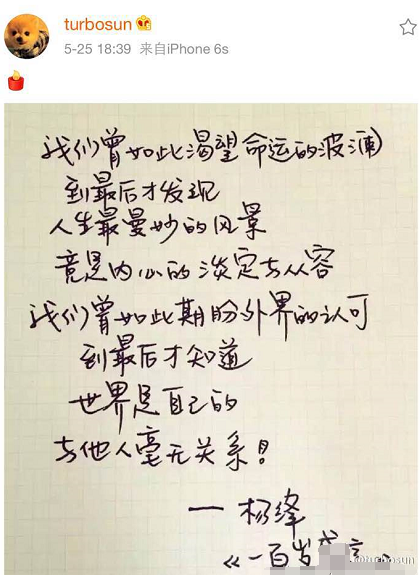 turbosun
5-25 18:39 来自iPhone 6s
我们曾如此渴望命运的波澜
到最后才发现
人生最曼妙的风景
竟是内心的淡定与从容
我们曾如此期盼外界的认可
到最后才知道
世界是自己的
与他人毫无关系！
— 杨绛
《一百岁感言
turbosun